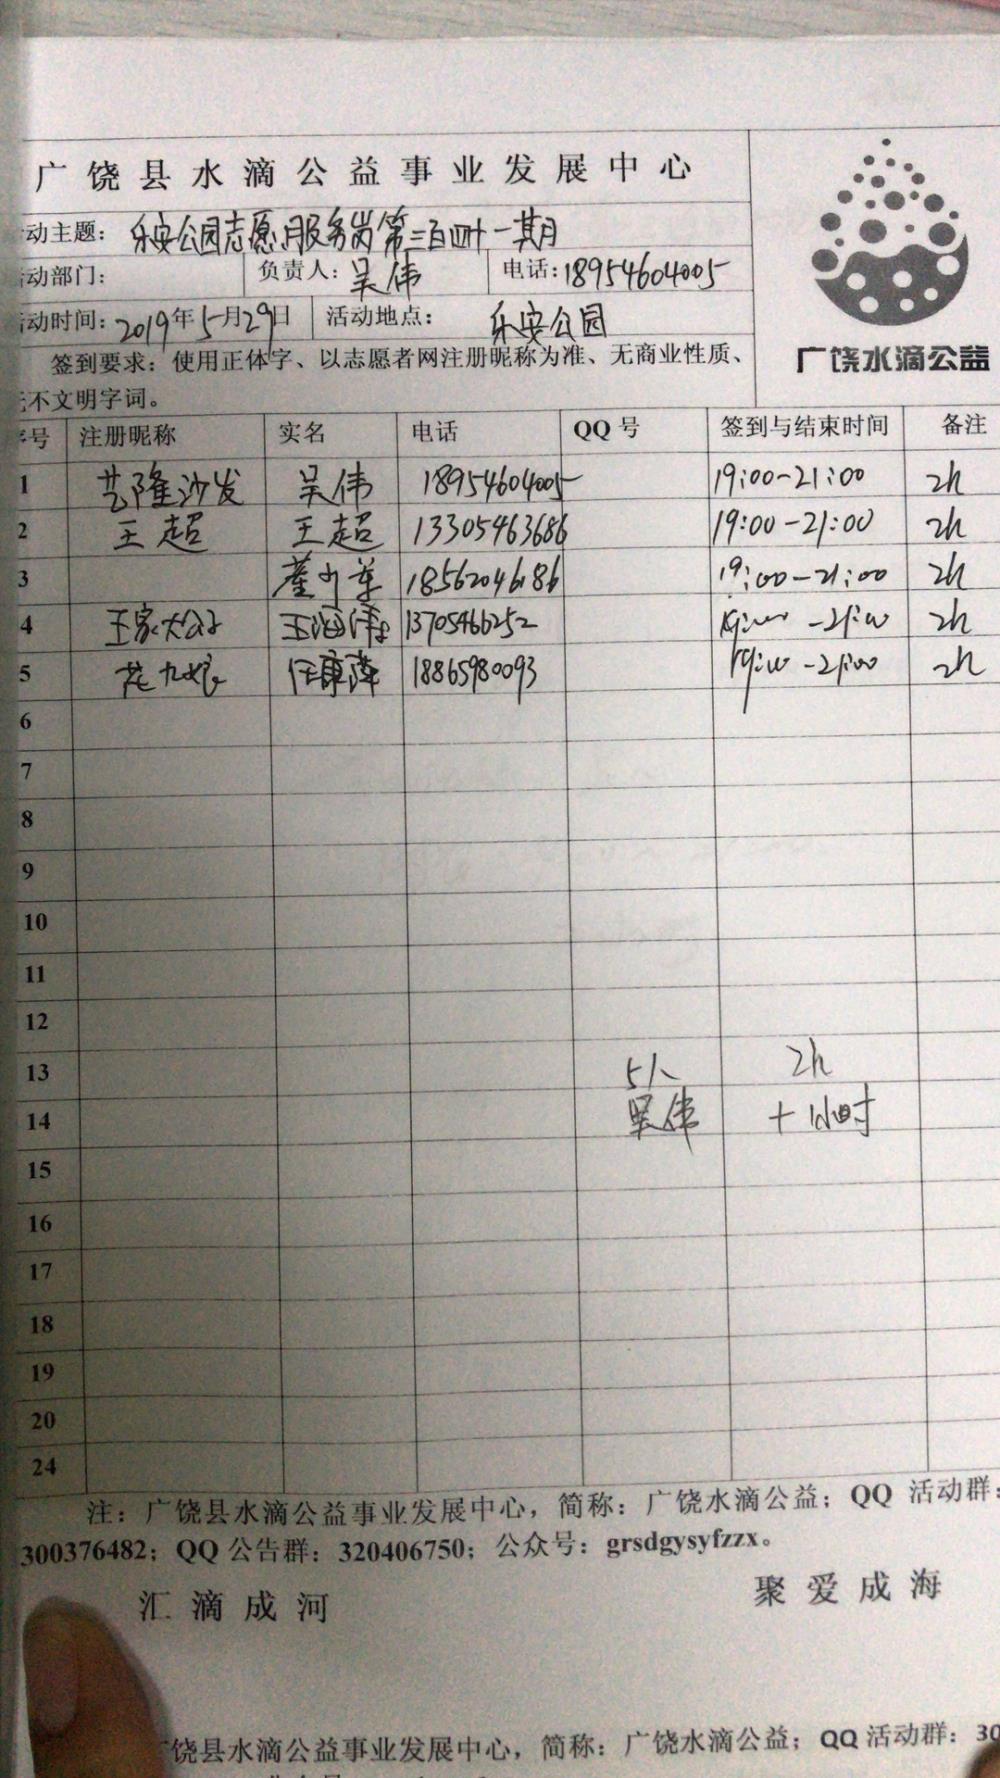 广饶县水滴公益事业发展中心
动主题：乐安公园志愿服务岗第三百四十一期
动部门： 负责人：吴伟 电话：18954604005
动时间：2019年5月29日 活动地点：乐安公园
签到要求：使用正体字、以志愿者网注册昵称为准、无商业性质、
不文明字词。
广饶水滴公益
号 注册昵称 实名 电话 QQ号 签到与结束时间 备注
1 艺隆沙发 吴伟 18954604005 19:00-21:00 2h
2 王超 王超 13305463686 19:00-21:00 2h
3 18562046186 19:00-21:00 2h
4 13705466252 19:00-21:00 2h
5 花九娘 18865980093 19:00-21:00 2h
6
7
8
9
10
11
12
13 5人 2h
14 吴伟 +1小时
15
16
17
18
19
20
24
注：广饶县水滴公益事业发展中心，简称：广饶水滴公益；QQ 活动群：
300376482；QQ公告群：320406750；公众号：grsdgysyfzzx。
汇滴成河 聚爱成海
饶县水滴公益事业发展中心，简称：广饶水滴公益；QQ活动群：30